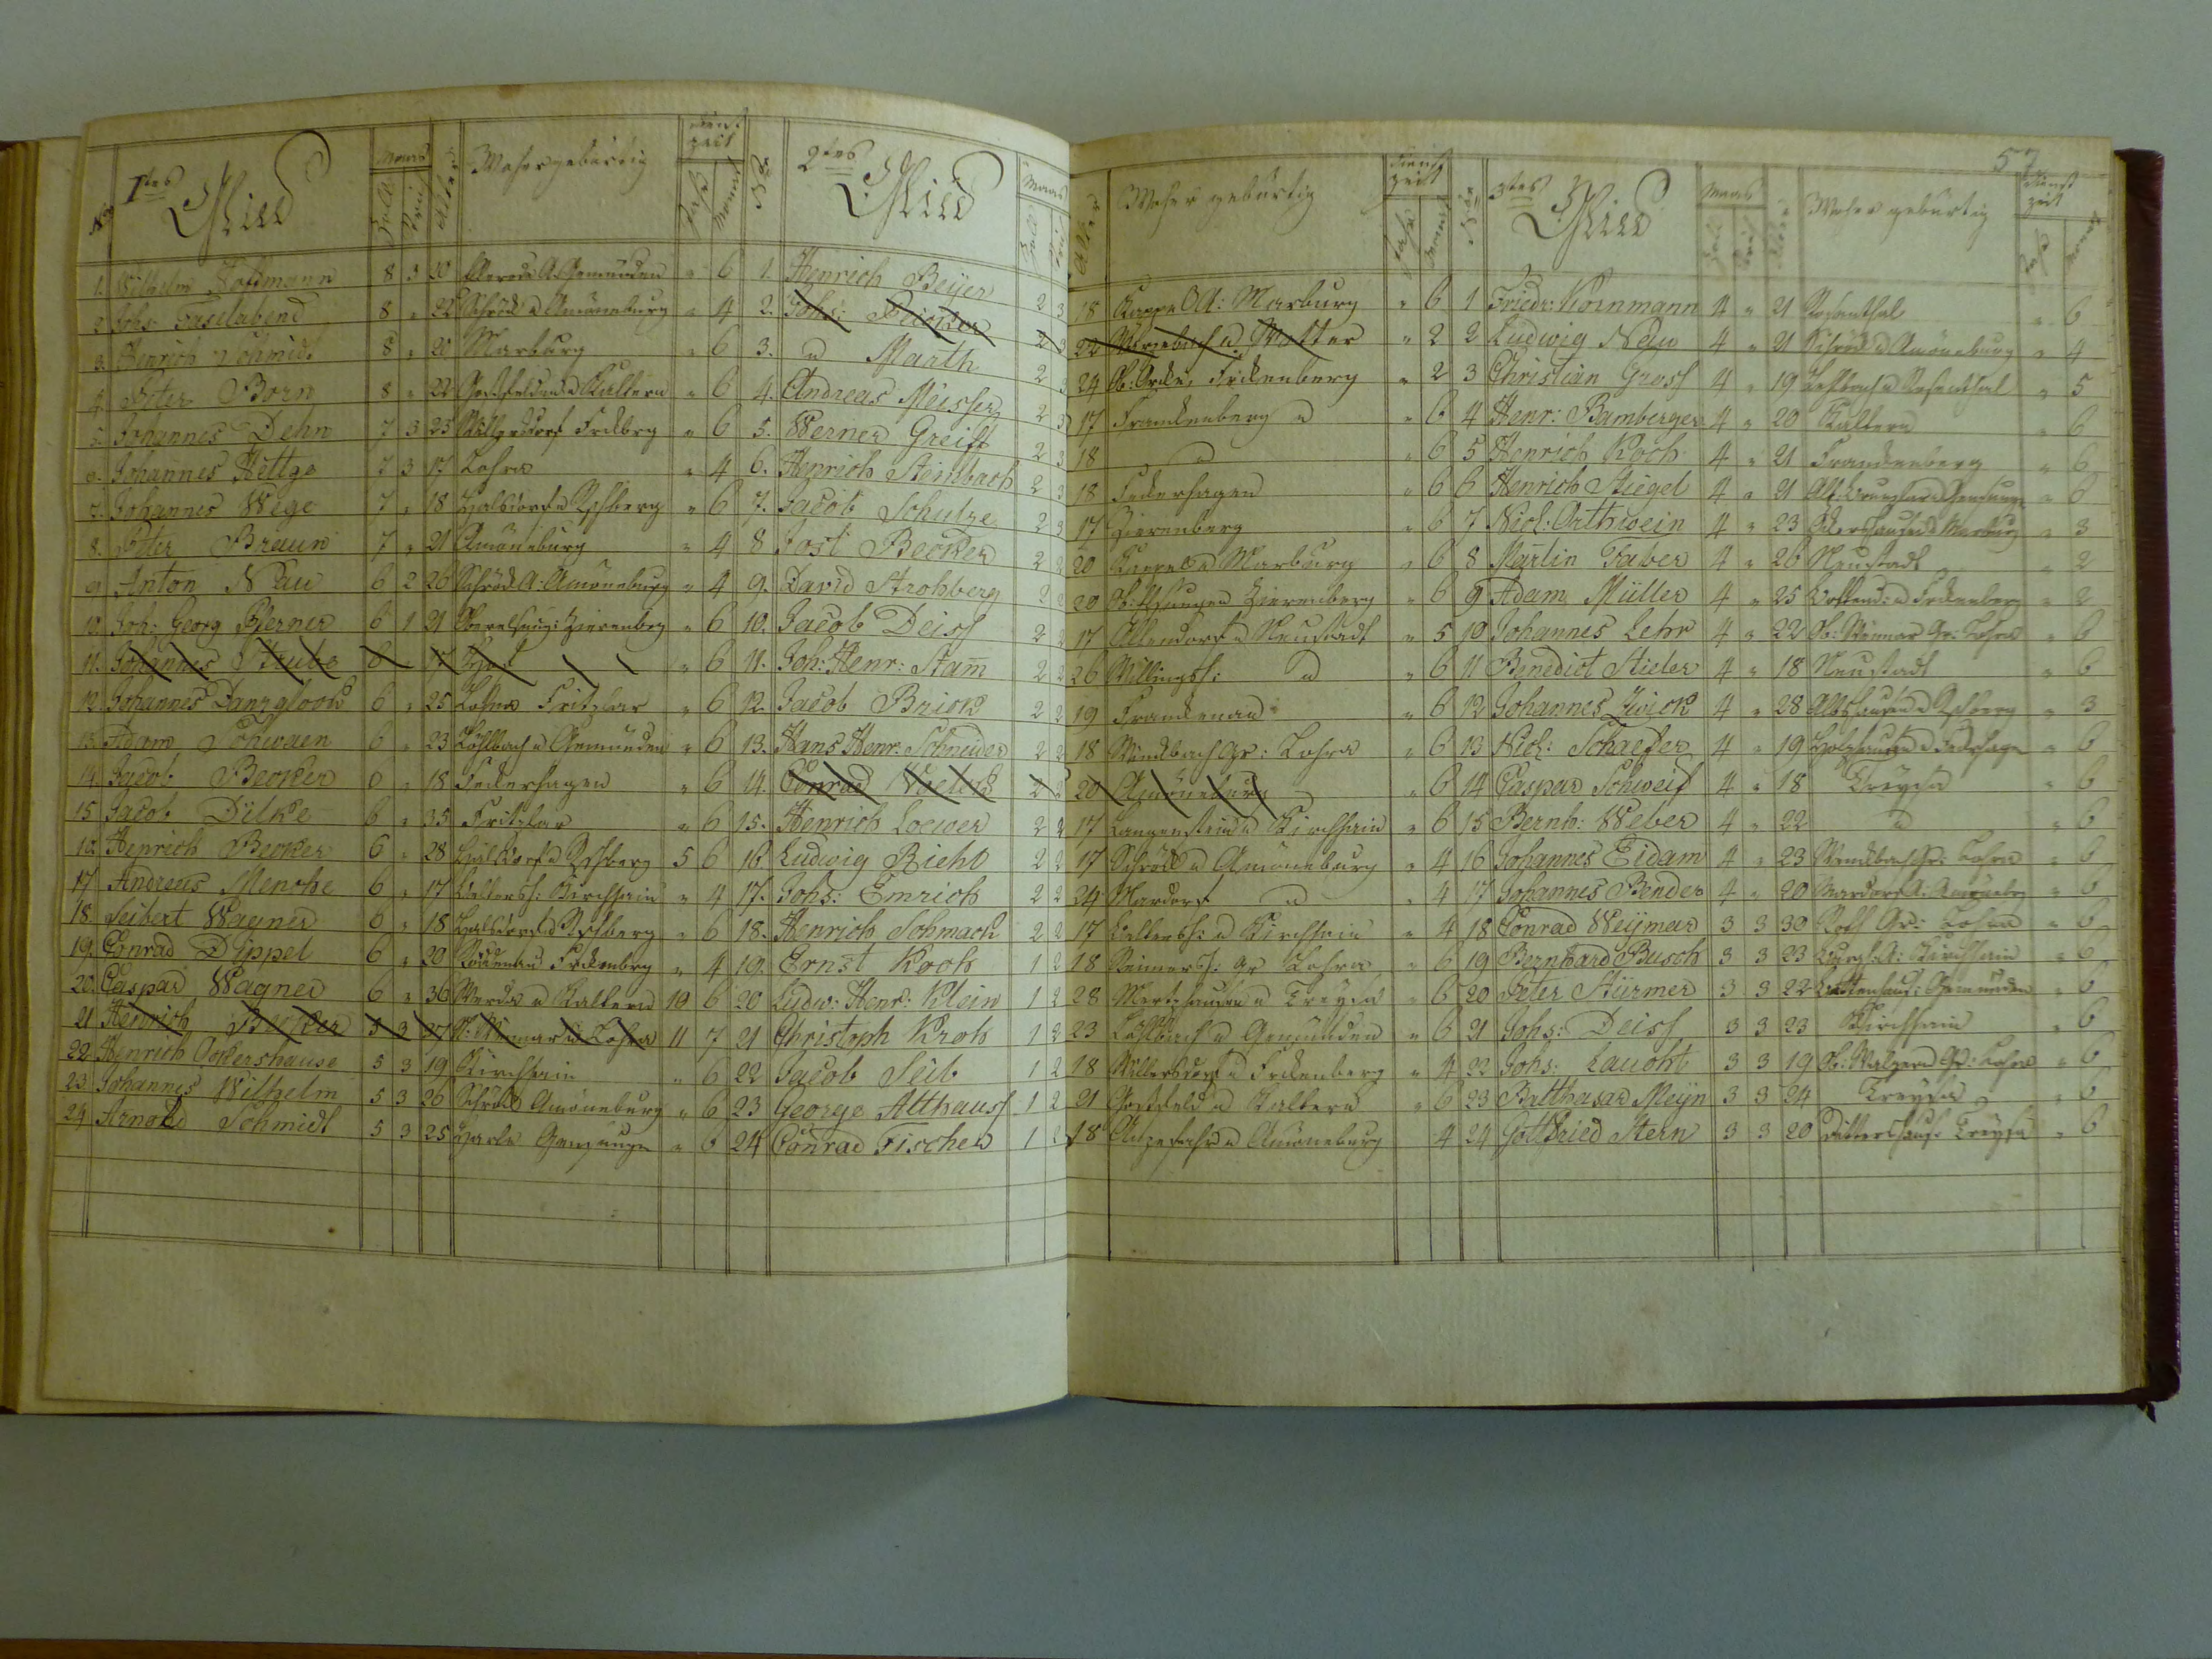 57.
No 1tes Glied Maas Zoll Alter Woher gebürtig Dienst zeit Jahr Monat No 2tes Glied Maas Zoll Alter Woher gebürtig Dienst zeit Jahr Monat No 3tes Glied Maas Zoll Alter Woher gebürtig Dienst zeit Jahr Monat
1. Wilhelm Hoffmann 8 3 20 Gemünden " 6 1. Henrich Beijer 2 3 18 Kappel A: Marburg " 6 1 Friedr: Kornmann 4 " 21 Rosenthal " 6
2. Johs: Faselabend 8 " 22 Schröck Amöneburg " 4 2. Johs: 2 3 22 Wetter " 2 2 Ludwig Nau 4 " 21 Schröck Amöneburg " 4
3. Henrich Schmidt 8 " 20 Marburg " 6 3. " Marth 2 3 24 Frckenberg " 2 3 Christian Gross 4 " 19 Rosenthal " 5
4. Peter Born 8 " 22 Goßfelden Kaldern " 6 4. Andreas Meisser 2 3 17 Franckenberg " 6 4 Henr: Bamberger 4 " 20 Kaldern " 6
5. Johannes Dehn 7 3 23 Willersdorf Frckbrg " 6 5. Werner Greiff 2 3 18 " " 6 5 Henrich Koch 4 " 21 Franckenberg " 6
6. Johannes Hettge 7 3 17 Lohra " 4 6. Henrich Steinbach 2 3 18 Veckerhagen " 6 6 Henrich Stiegel 4 " 21 " 6
7. Johannes Wege 7 " 18 Halsdorf Rschberg " 6 7. Jacob Schulze 2 3 17 Zierenberg " 6 7 Nicl: Orthwein 4 " 23 Ockershausen Marburg " 3
8. Peter Braun 7 " 21 Amöneburg " 4 8 Jost Becker 2 2 20 Marburg " 6 8 Martin Faber 4 " 26 Neustadt " 2
9. Anton Nau 6 2 26 Schröck A: Amöneburg " 4 9. David Strohberg 2 2 20 Zierenberg " 6 9 Adam Müller 4 " 25 Frckenberg " 2
10. Joh: Georg Werner 6 1 21 Zierenbrg " 6 10. Jacob Deiss 2 2 17 Allendorf Neustadt " 5 10 Johannes Lehr 4 " 22 Ob: Weimar Gr: Lohra " 6
11. Johannes Strube 6 " 17 " 6 11. Joh: Henr: Stam̄ 2 2 26 Willingsh: " " 6 11 Benedict Stieler 4 " 18 Neustadt " 6
12. Johannes Danzglock 6 " 25 Lohra Fritzlar " 6 12. Jacob Brick 2 2 19 Franckenau " 6 12 Johannes Zwick 4 " 28 Albshausen Rschberg " 3
13. Adam Schwaen 6 " 23 Löhlbach Gemünden " 6 13. Hans Henr: Schneider 2 2 18 Weidbach Gr: Lohra " 6 13 Nicl: Schaefer 4 " 19 Holzhausen " 6
14. Jacob Becker 6 " 18 Veckerhagen " 6 14. Conrad 2 2 20 Amöneburg " 6 14 Caspar Schweif 4 " 18 Treysa " 6
15 Jacob Dilke 6 " 35 Fritzlar " 6 15. Henrich Loewer 2 2 17 Langenstein Kirchhain " 6 15 Bernh: Weber 4 " 22 " " 6
16. Henrich Becker 6 " 28 Halsdorf Rschberg 5 6 16. Ludwig Riehl 2 2 17 Schröck Amöneburg " 4 16 Johannes Eidam 4 " 23 Gr: Lohra " 6
17 Andreas Menche 6 " 17 Kirchhain " 4 17. Johs: Emrich 2 2 24 Mardorf " " 4 17 Johannes Bender 4 " 20 Mardorf A: Amöneb " 6
18. Seibert Wagner 6 " 18 Halsdorf Rschberg " 6 18. Henrich Schmack 2 2 17 Kirchhain " 4 18 Conrad Weijmar 3 3 30 Roth Gr: Lohra " 6
19. Conrad Dippel 6 " 20 Röddenau Frckenberg " 4 19. Ernst Koch 1 2 18 Gr Lohra " 6 19 Bernhard Busch 3 3 23 A: Kirchhain " 6
20. Caspar Wagner 6 " 36 Werda Kaldern 10 6 20 Ludw: Henr: Klein 1 2 28 Mertzhausen Treysa " 6 20 Peter Stürmer 3 3 22 Gemünden " 6
21 Henrich Becker 5 3 27 N: Weimar Lohra 11 7 21 Christoph Kroh 1 2 23 Löhlbach Gemünden " 6 21 Johs: Deiss 3 3 23 Kirchhain " 6
22. Henrich Ockershause 5 3 19 Kirchhain " 6 22 Jacob Seib 1 2 18 Willersdorf Frckenberg " 4 22 Johs: Laucht 3 3 19 Ob: Walgern Gr: Lohra " 6
23 Johannes Wilhelm 5 3 26 Schröck Amöneburg " 6 23 George Althauss 1 2 21 Goßfeld Kaldern " 6 23 Balthasar Meijn 3 3 24 Treysa " 6
24 Arnold Schmidt 5 3 25 Harle Gensunge " 6 24 Conrad Fischer 1 2 18 Anzefahr Amöneburg 4 24 Gottfried Stern 3 3 20 Dittershaus: Treysa " 6